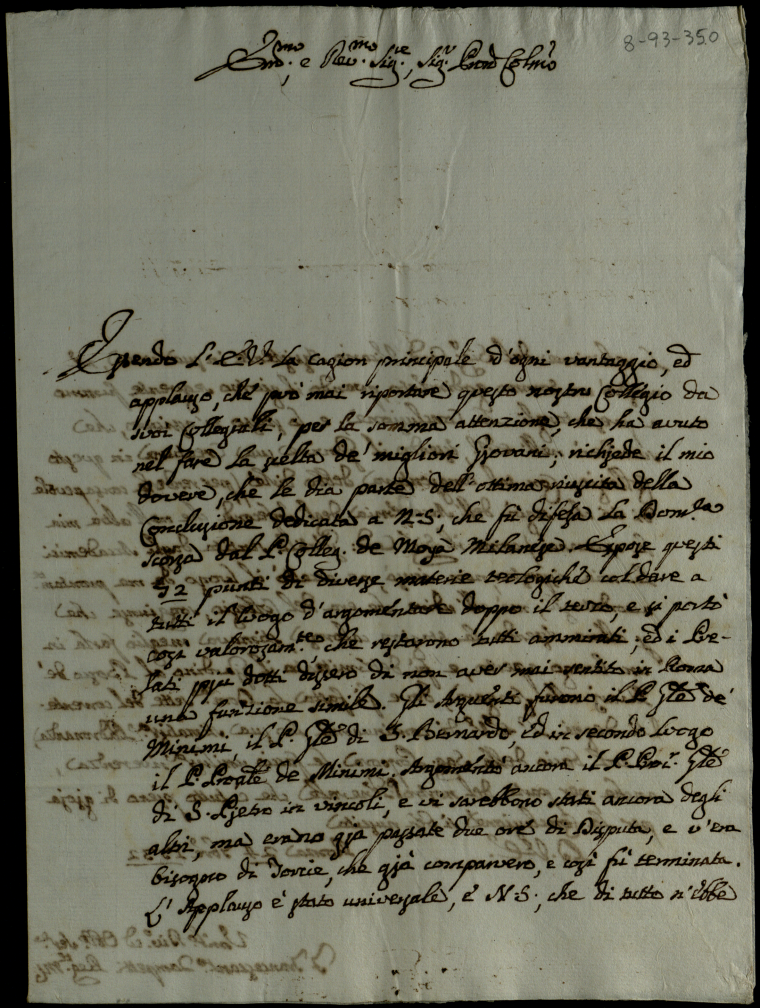 8-93-350
Em̃o. e Rev.mo Sig.re, Sig.r Pron Colmo
Essendo L'. E. V. La cagion principale d'ogni vantaggio, ed
applauso, che può mai riportare questo nostro Collegio da
suoi Collegiali, per la somma attenzione, che ha avuto
nel fare la scelta de' migliori Giovani; richiede il mio
dovere, che le dia parte dell'ottima riuscita della
Conclusione dedicata a N. S., che fù difesa La Dom.ca
scorsa dal P. Colleg. de Moya Milanese. Espose questi
52 punti di diverse materie teologiche col dare a
tutti il luogo d'argomentare doppo il terzo, e si portò
così valorosam.te che restarono tutti ammirati, ed i Pre-
lati più dotti dissero di non aver mai sentito in Roma
una funzione simile. Gli Arguenti furono il P. Gñle de'
Minimi, il P. Gñle di S. Bernardo, ed in secondo Luogo
il P. Proñle de Minimi. Argomentò ancora il P. Gñle
di S. Pietro in vincoli, e vi sarebbono stati ancora degli
altri, ma erano già passate due ore di Disputa, e v'era
bisogno di Torcie, che già comparvero, e così fù terminata.
L'Applauso è stato universale, e N. S., che di tutto n'ebbe